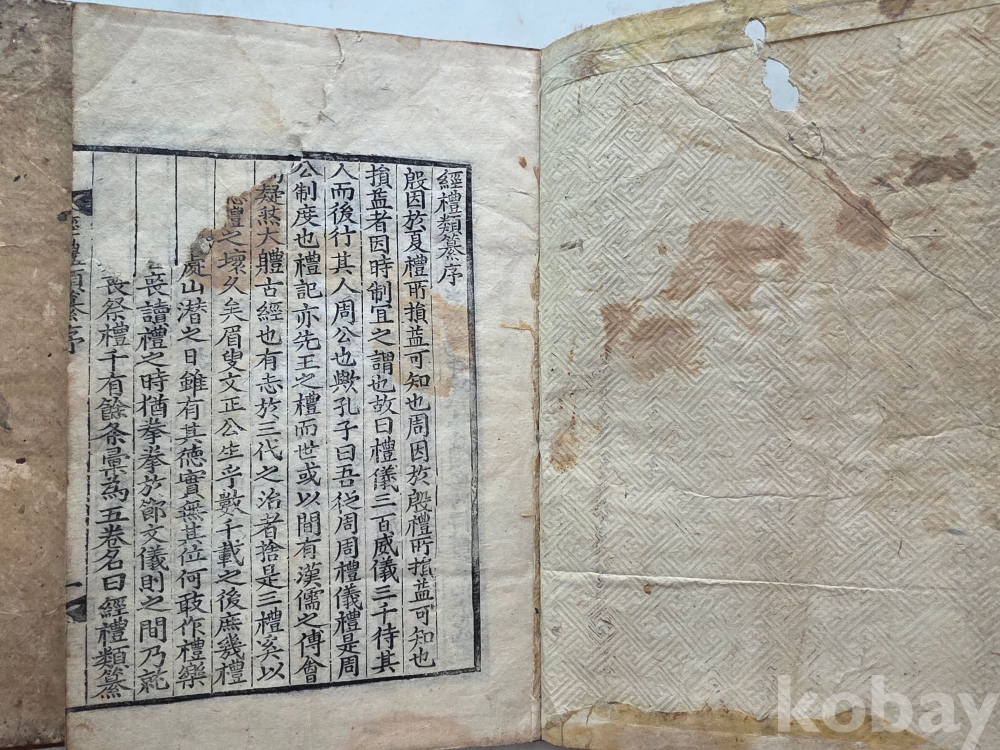 經禮類纂序
殷因於夏禮所損益可知也周因於殷禮所損益可知也
損益者因時制宜之謂也故曰禮儀三百威儀三千待其
人而後行其人周公也歟孔子曰吾從周周禮儀禮是周
公制度也禮記亦先王之禮而世或以間有漢儒之傅會
疑然大軆古經也有志於三代之治者捨是三禮奚以
禮之壞久矣眉叟文正公生乎數千載之後庶幾禮
處山潜之日雖有其德實無其位何敢作禮樂
喪讀禮之時猶拳拳於節文儀則之間乃就
喪祭禮千有餘条彙為五卷名曰經禮類纂
經禮類纂序
kobay